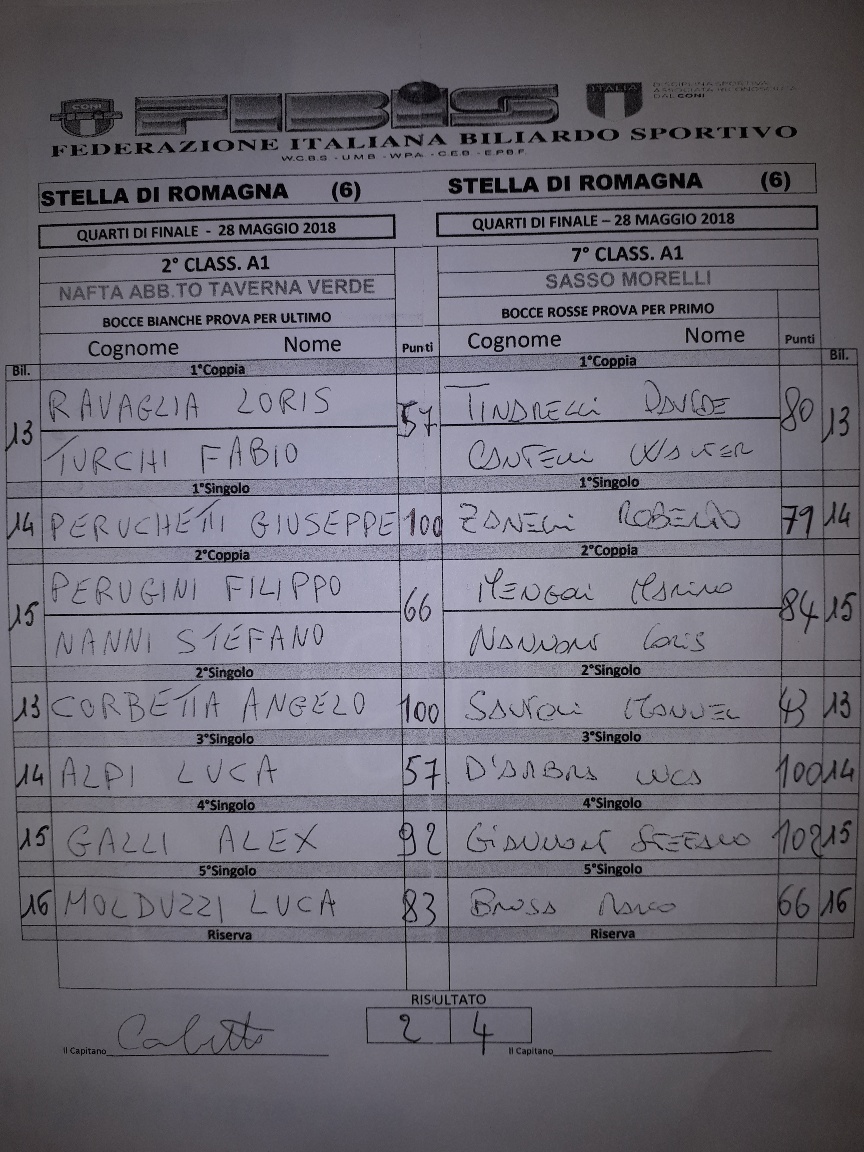 CONI FIBiS ITALIA
DISCIPLINA SPORTIVA
ASSOCIATA RICONOSCIUTA
DAL CONI
FEDERAZIONE ITALIANA BILIARDO SPORTIVO
W.C.B.S - U.M.B - W.P.A. - C.E.B - E.P.B.F.
STELLA DI ROMAGNA (6) STELLA DI ROMAGNA (6)
QUARTI DI FINALE - 28 MAGGIO 2018 QUARTI DI FINALE – 28 MAGGIO 2018
2° CLASS. A1 7° CLASS. A1
NAFTA ABB.TO TAVERNA VERDE SASSO MORELLI
BOCCE BIANCHE PROVA PER ULTIMO BOCCE ROSSE PROVA PER PRIMO
Cognome Nome Punti Cognome Nome Punti
Bil. 1°Coppia 1°Coppia Bil.
13 RAVAGLIA LORIS 57 TINARELLI DAVIDE 80 13
TURCHI FABIO CANTELLI WALTER
1°Singolo 1°Singolo
14 PERUCHETTI GIUSEPPE 100 ZANELLI ROBERTO 79 14
2°Coppia 2°Coppia
15 PERUGINI FILIPPO 66 MENGOLI MARINO 84 15
NANNI STEFANO NANNONI LORIS
2°Singolo 2°Singolo
13 CORBETTA ANGELO 100 SANTOLI MANUEL 43 13
3°Singolo 3°Singolo
14 ALPI LUCA 57 D'ANBRA LUCA 100 14
4°Singolo 4°Singolo
15 GALLI ALEX 92 GIANNONI STEFANO 102 15
5°Singolo 5°Singolo
16 MOLDUZZI LUCA 83 BRUSA MARCO 66 16
Riserva Riserva
RISULTATO
2 4
Il Capitano Il Capitano